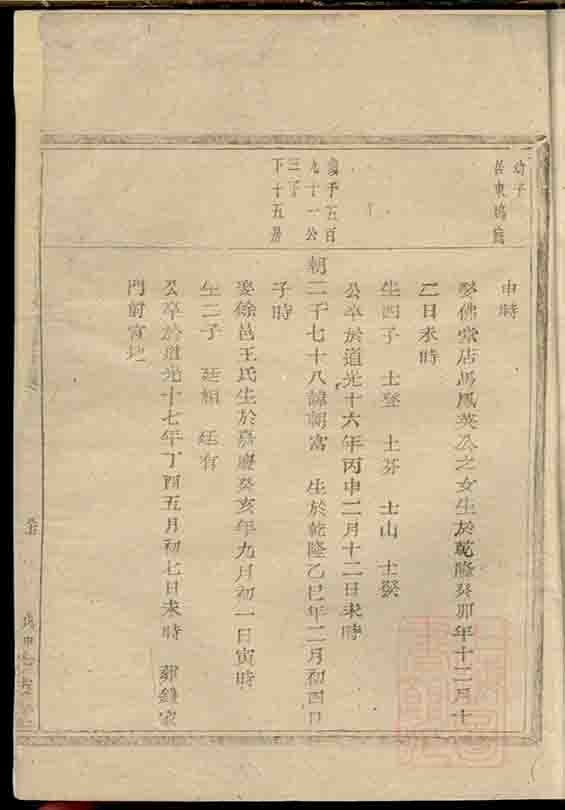 幼子
居東塢
申時
娶佛堂店馮鳳英公之女生於乾隆癸卯年十二月十
二日未時
生四子 士登 士芬 士山 士癸
公卒於道光十六年丙申二月十二日未時
歲字五百
九十一公
三子
下十五房
朝二千七十八諱朝富 生於乾隆乙巳年二月初四日
子時
娶餘邑王氏生於嘉慶癸亥年九月初一日寅時
生二子 廷相 廷有
公卒於道光十七年丁酉五月初七日未時 葬鍾家
門前富地